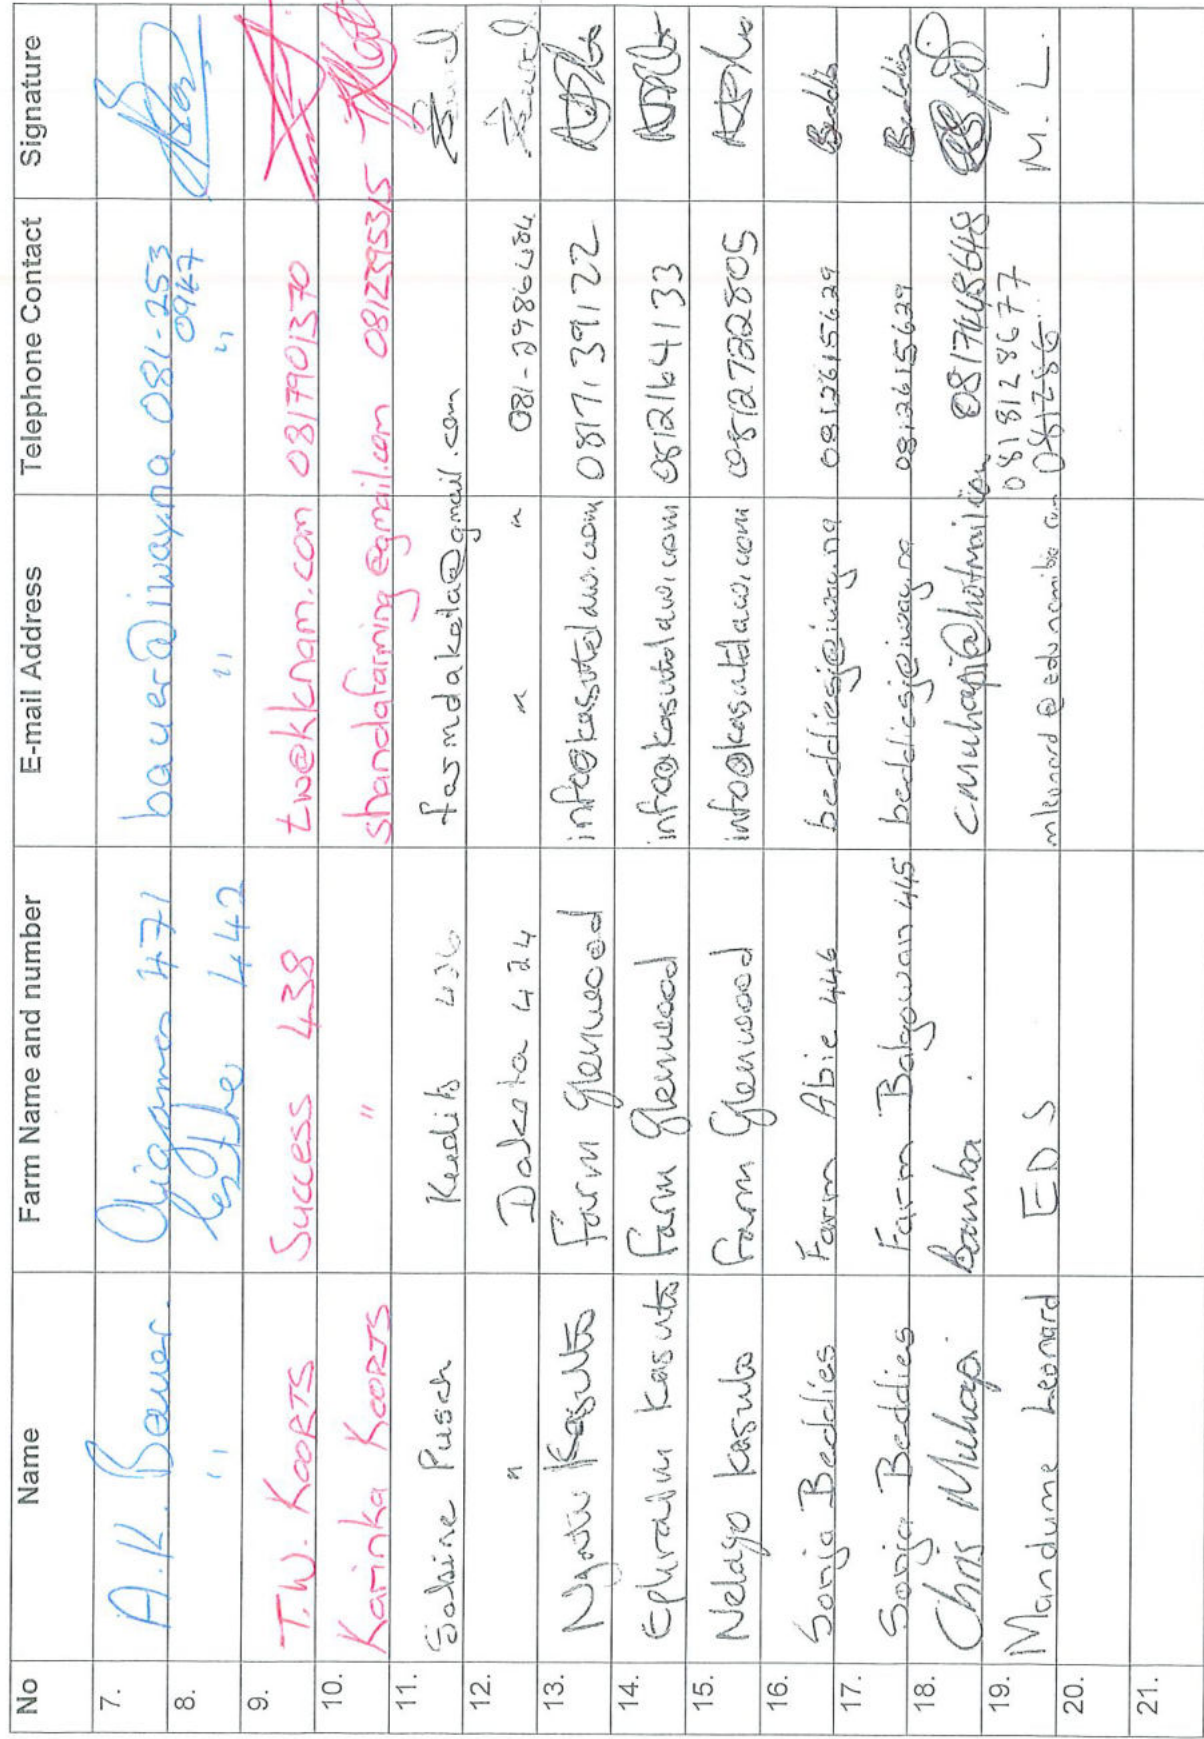 No Name Farm Name and number E-mail Address Telephone Contact Signature
7. A.K. Bauer 471 bauer@iway.na 081-253 0947
8. " 442 " "
9. T.W. KOORTS Success 438 tw@kknam.com 0817901370
10. Karinka KOORTS " shandafarming@gmail.com 0812395315
11. Sabine Pusch farmdakota@gmail.com
12. " Dakota 424 " " 081-2986484
13. Kasuto Farm Glenwood info@kasutolaw.com 0817139122
14. Ephraim Kasuto Farm Glenwood info@kasutolaw.com 0812164133
15. Nelago Kasuto Farm Glenwood info@kasutolaw.com 0812722805
16. Sonja Beddies Farm Abie 446 beddiesj@iway.na 0812615629
17. Sonja Beddies Farm Balgowan 445 beddiesj@iway.na 0812615629
18. Chris Muhapi cmuhapi@hotmail.com 0817448648
19. Mandume Leonard EDS mleonard@edsnamibia.com 0818128677 M. L.
20.
21.